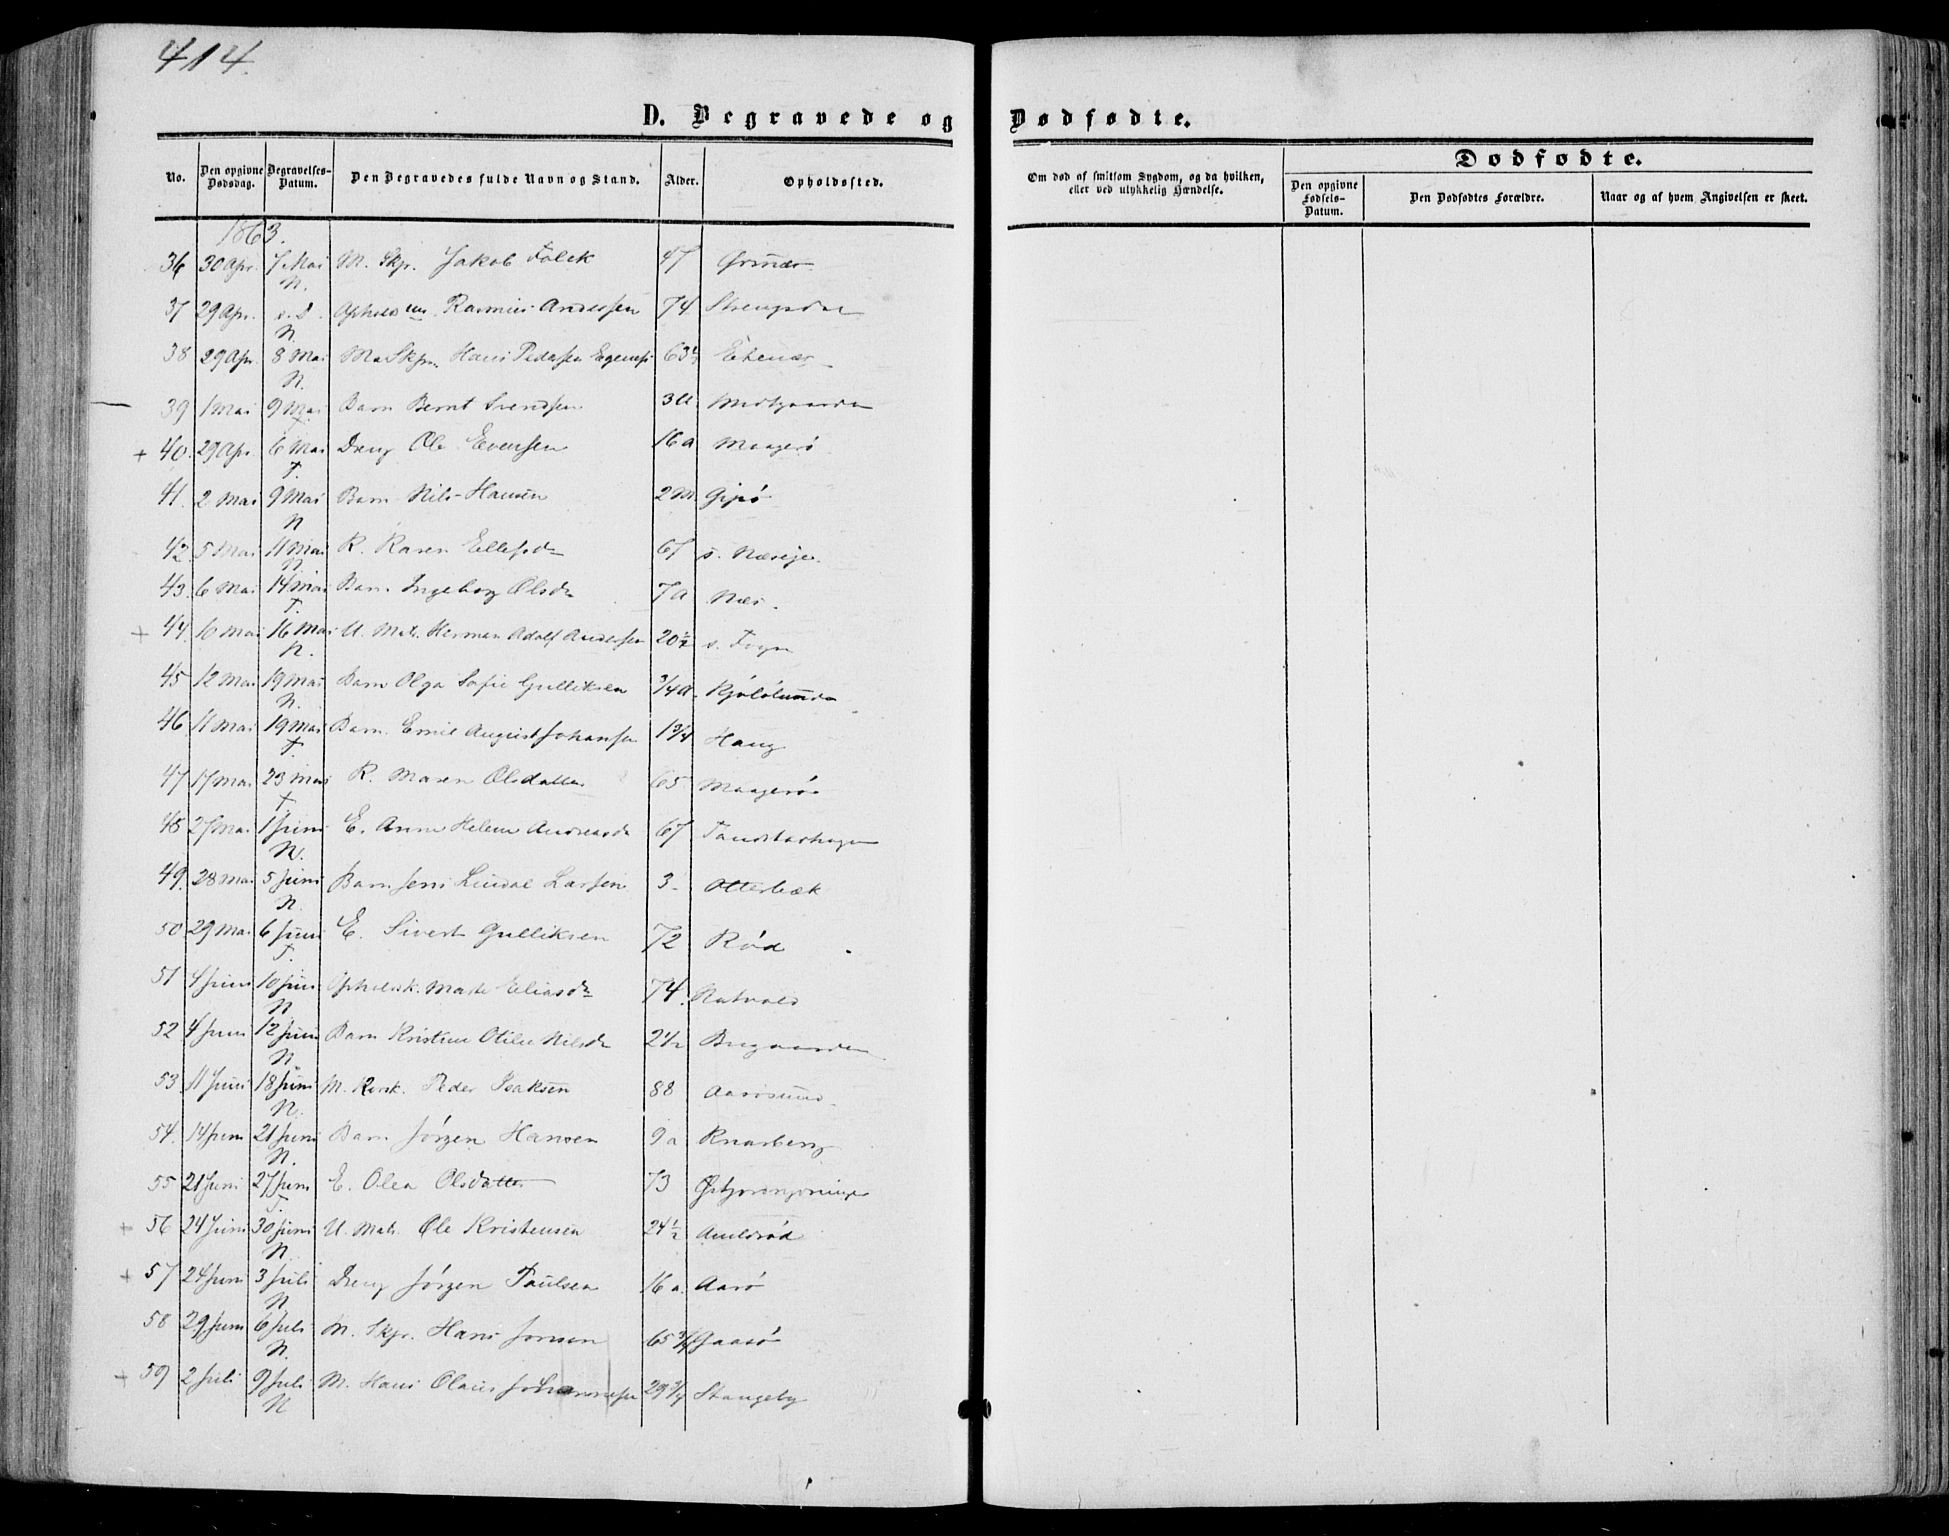 414.
D. Begravede og Dødfødte.
No. Den opgivne Dødsdag. Begravelses-Datum. Den Begravedes fulde Navn og Stand. Alder. Opholdssted. Om død af smitsom Sygdom, og da hvilken, eller ved ulykkelig Hændelse. Dødfødte.
Den opgivne Fødsels-Datum. Den Dødfødtes Forældre. Naar og af hvem Angivelsen er skeet.
1863.
36 30 Apr. 7 Mai N. M. Skpr. Jakob Falck 47
37 29 Apr. s. D. N Rasmus Anderssen 74 Strengsdal
38 29 Apr. 8 Mai N. Hans Pedersen 63½ Ekenæs
39 1 Mai 9 Mai T. Barn Bernt Svendsen 3 a. Midtgaarden
+ 40. 29 Apr. 6 Mai T. Dreng Ole Evensen 16 a Maagerø
41. 2 Mai 9 Mai N Barn Nils Hansen 2 M. Gipø
42. 5 Mai 11 Mai N. K. Karen Ellefsdr 67
43. 6 Mai 14 Mai T. Barn Ingeborg Olsdr 7 a Næs.
+ 44. 10 Mai 16 Mai N. U. Mats. Herman Adolf Anderssen 20½
45 12 Mai 19 Mai N. Barn Olga Sofie Gulliksen ¾ a. Kjølølunden
46 11 Mai 19 Mai T Barn Emil August Johansen 1¾ Haug
47 17 Mai 23 Mai T K. Maren Olsdatter 65 Maagerø
48 27 Mai 1 Juni N. E. Anne Helene Andreasdr 67
49. 28 Mai 5 Juni N. Barn Jens Lindal Larsen 3 Otterbæk
50 29 Mai 6 Juni T. E. Sivert Gulliksen 72 Rød
51 4 Juni 10 Juni N Marte Eliasdr 74.
52 4 Juni 12 Juni N Barn Kristine Otilie Nilsdr 2½ Brugaarden
53 11 Juni 18 Juni N. M. Peder Isaksen 88 Aarøsund.
54. 14 Juni 21 Juni N. Barn Jørgen Hansen 9 a Knarberg
55 21 Juni 27 Juni T. E. Olea Olsdatter 73
+ 56 24 Juni 30 Juni N. U. Mats. Ole Kristensen 24½ Auldrød
+ 57 24 Juni 3 Juli N Dreng Jørgen Paulsen 16 a. Aarø
58 29 Juni 6 Juli N. M. Skpr. Hans Jonsen 65¾ Gaasø
+ 59 2 Juli 9 Juli N M. Hans Olaus Johannesen 29¾ Stangeby